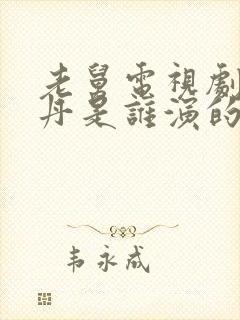 老舅電視劇
丹是誰演的
韦永成